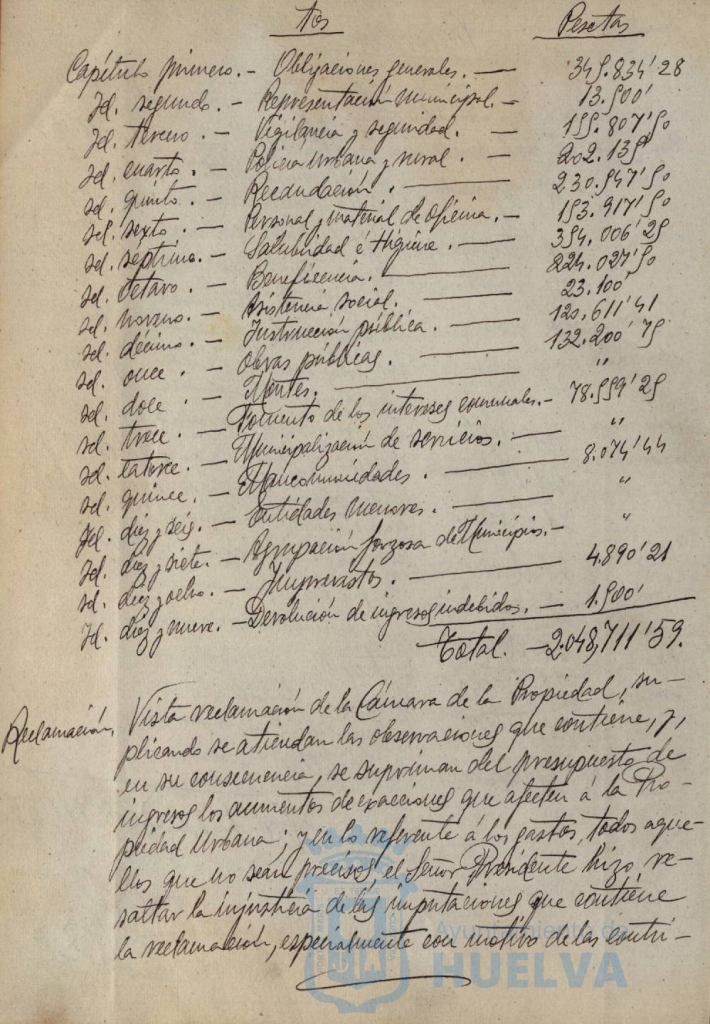 tos Pesetas
Capítulo primero.- Obligaciones generales.— 345.834'28
Id. segundo.- Representación municipal.- 13.500'
Id. tercero.- Vigilancia y seguridad.— 155.807'50
Id. cuarto.- Policía urbana y rural.— 202.135'
Id. quinto.- Recaudación.— 230.547'50
Id. sexto.- Personal y material de oficina.- 153.917'50
Id. séptimo.- Salubridad é Higiene.— 354.006'25
Id. octavo.- Beneficencia.— 224.027'50
Id. noveno.- Asistencia social.— 23.100'
Id. décimo.- Instrucción pública.— 120.611'41
Id. once.- Obras públicas.— 132.200'75
Id. doce.- Montes.— "
Id. trece.- Fomento de los intereses comunales.- 78.559'25
Id. catorce.- Municipalización de servicios.— "
Id. quince.- Mancomunidades.— 8.074'44
Id. diez y seis.- Entidades menores.— "
Id. diez y siete.- Agrupación forzosa de Municipios.- "
Id. diez y ocho.- Imprevistos.— 4.890'21
Id. diez y nueve.- Devolución de ingresos indebidos.- 1.500'
Total.- 2.048,711'59.
Reclamación, Vista reclamación de la Cámara de la Propiedad, su-
plicando se atiendan las observaciones que contiene, y,
en su consecuencia, se supriman del presupuesto de
ingresos los aumentos de exacciones que afecten á la Pro-
piedad Urbana; y en lo referente á los gastos, todos aque-
llos que no sean precisos, el Señor Presidente hizo re-
saltar la injusticia de las imputaciones que contiene
la reclamación, especialmente con motivo de las contri-
Ayuntamiento de
HUELVA